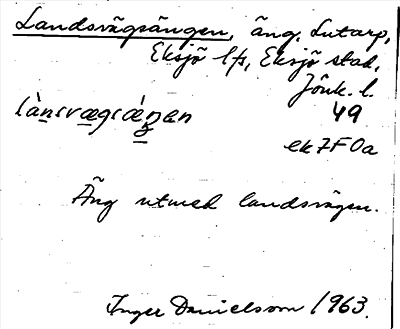 Landsvägsängen, äng, Lutarp,
Eksjö lfs, Eksjö stad,
Jönk. l.
49
ek7F0a
Äng utmed landsvägen.
Inger Danielsson 1963.